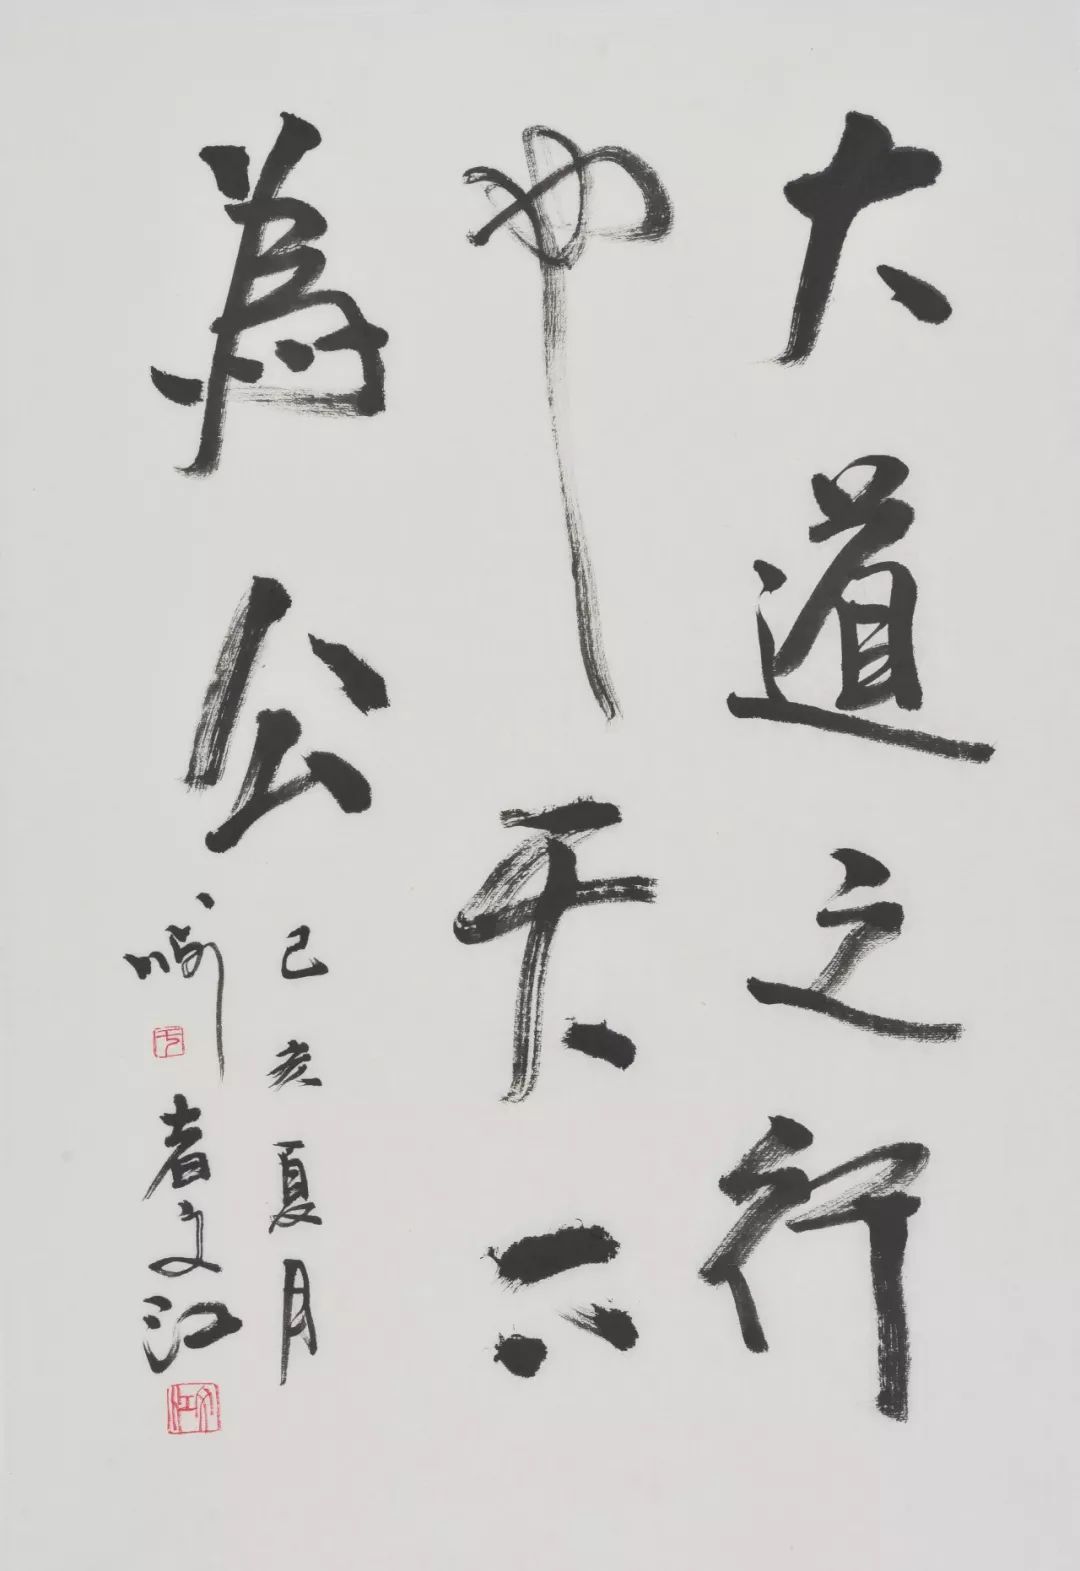 大道之行
也天下
為公
己亥夏月
者文江
文江